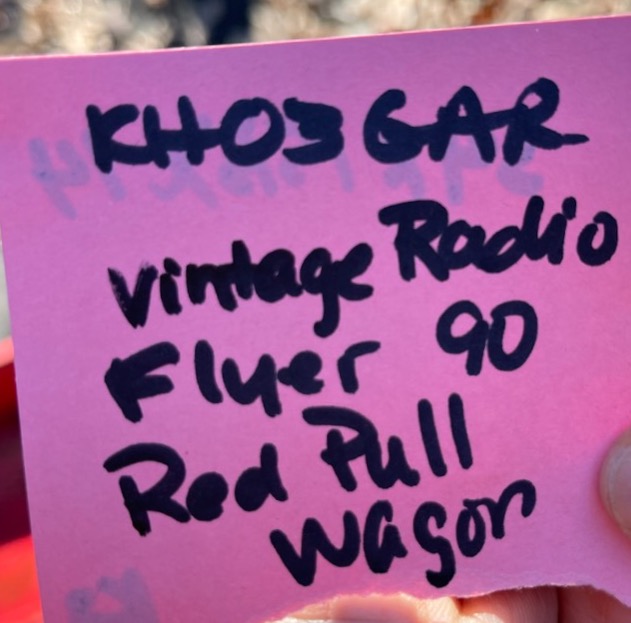 KHO3GAR
vintage Radio
Flyer 90
Red Pull
wagon